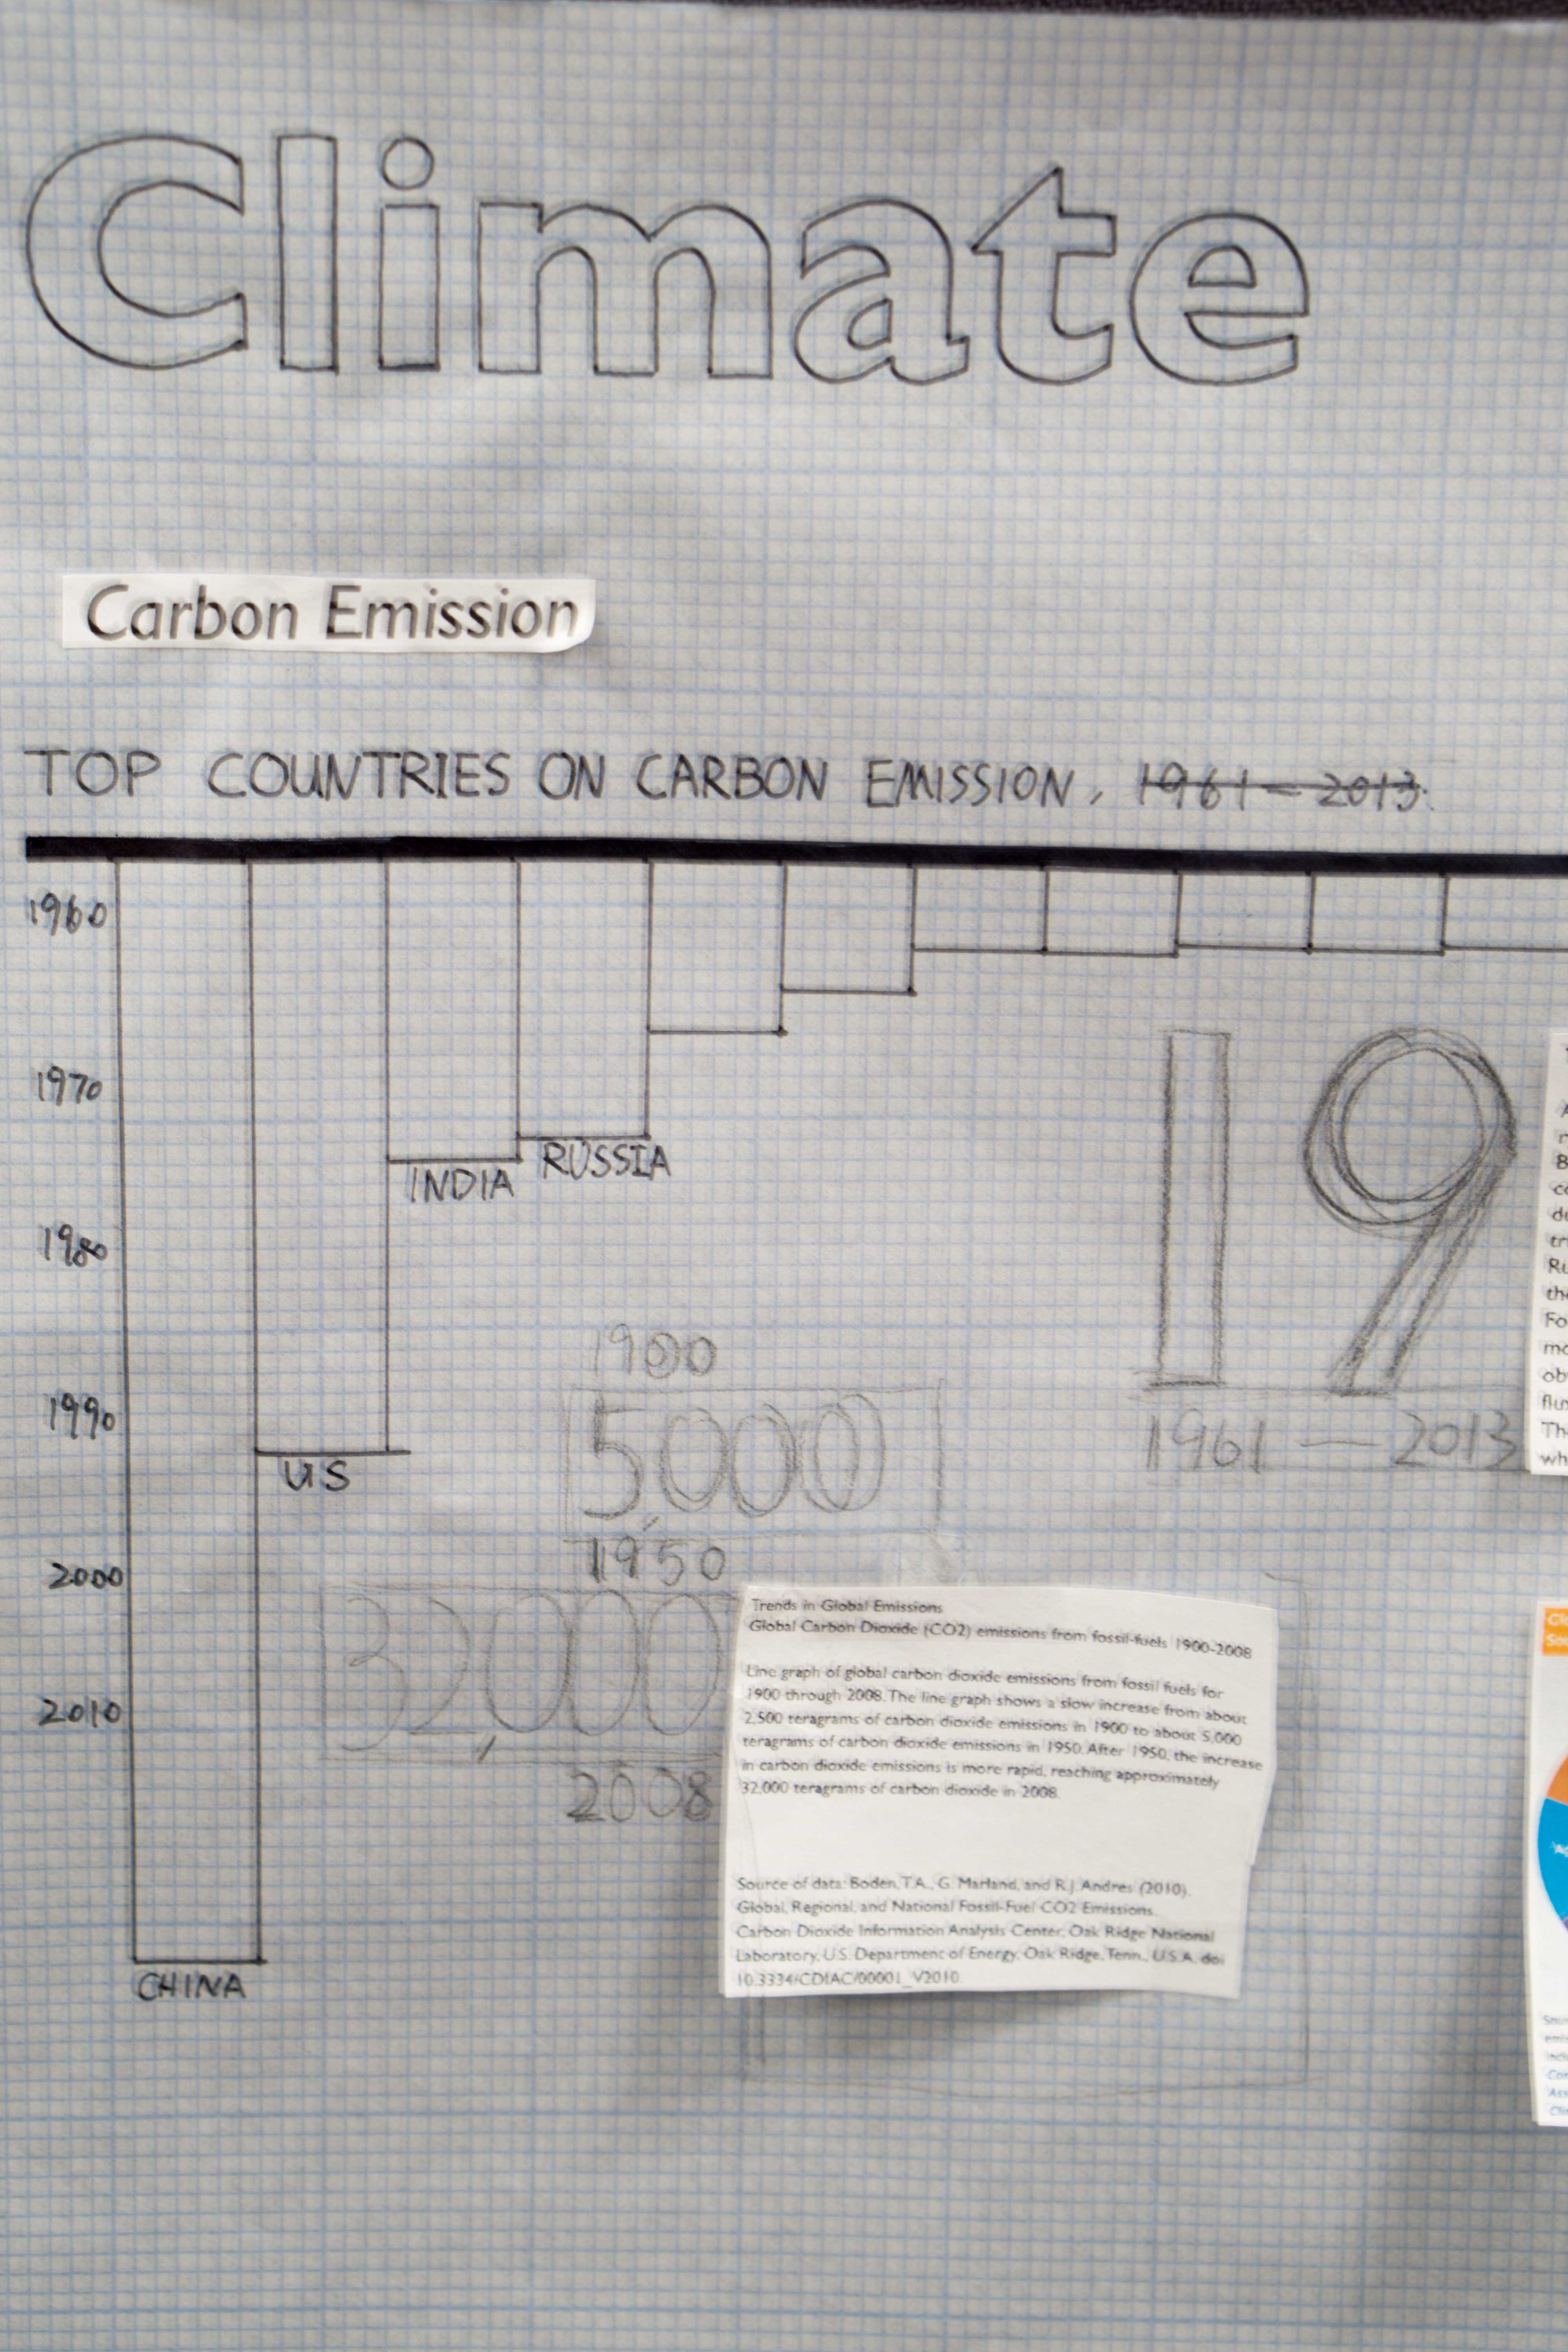 Climate
Carbon Emission
TOP COUNTRIES ON CARBON EMISSION, 1961 - 2013
1960
1970
1980
1990
2000
2010
INDIA
RUSSIA
US
CHINA
19
1961 — 2013
1900
5,000
1950
32,000
2008
Trends in Global Emissions
Global Carbon Dioxide (CO2) emissions from fossil-fuels 1900-2008
Line graph of global carbon dioxide emissions from fossil fuels for
1900 through 2008. The line graph shows a slow increase from about
2,500 teragrams of carbon dioxide emissions in 1900 to about 5,000
teragrams of carbon dioxide emissions in 1950. After 1950, the increase
in carbon dioxide emissions is more rapid, reaching approximately
32,000 teragrams of carbon dioxide in 2008.
Source of data: Boden, T.A., G. Marland, and R.J. Andres (2010).
Global, Regional, and National Fossil-Fuel CO2 Emissions.
Carbon Dioxide Information Analysis Center, Oak Ridge National
Laboratory, U.S. Department of Energy, Oak Ridge, Tenn., U.S.A. doi
10.3334/CDIAC/00001_V2010.